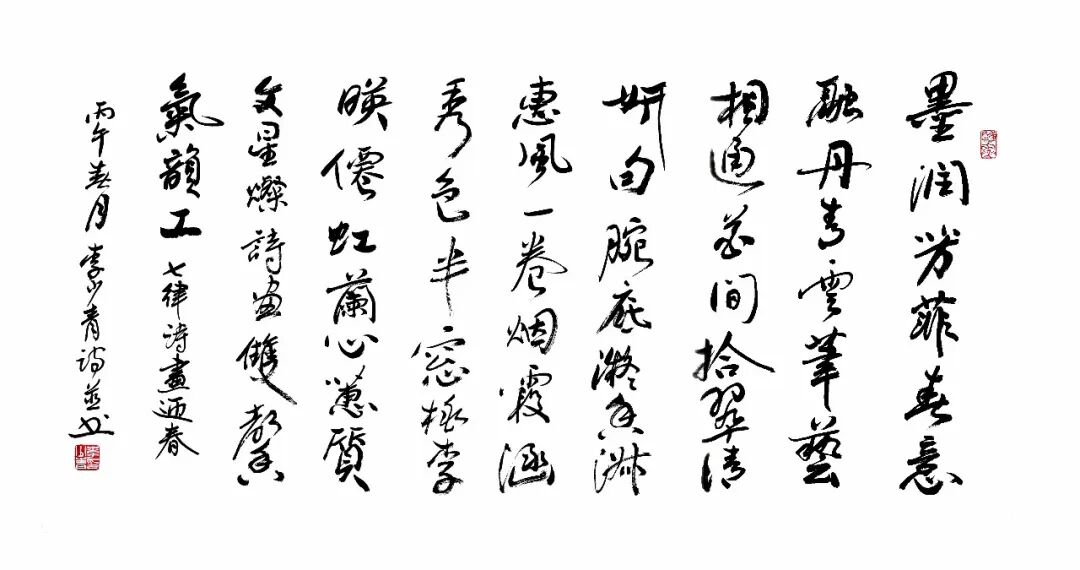 墨润芳菲春意
融丹青雲筆藝
相通花間拾翠清
妍句腕底凝香淑
惠風一卷烟霞涵
秀色半窓桃李
暎僊虹蘭心蕙質
文星燦詩畫雙馨
氣韻工 七律诗畫迎春
丙午春月李青诗並书